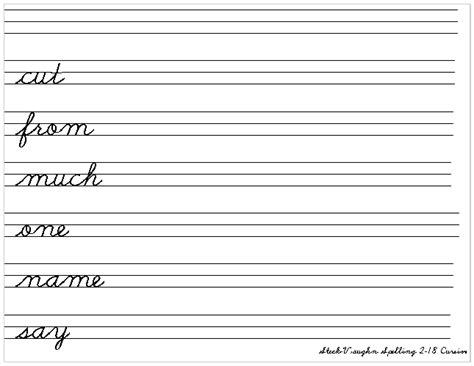 cut
from
much
one
name
say
Steck-Vaughn Spelling 2-18 Cursive